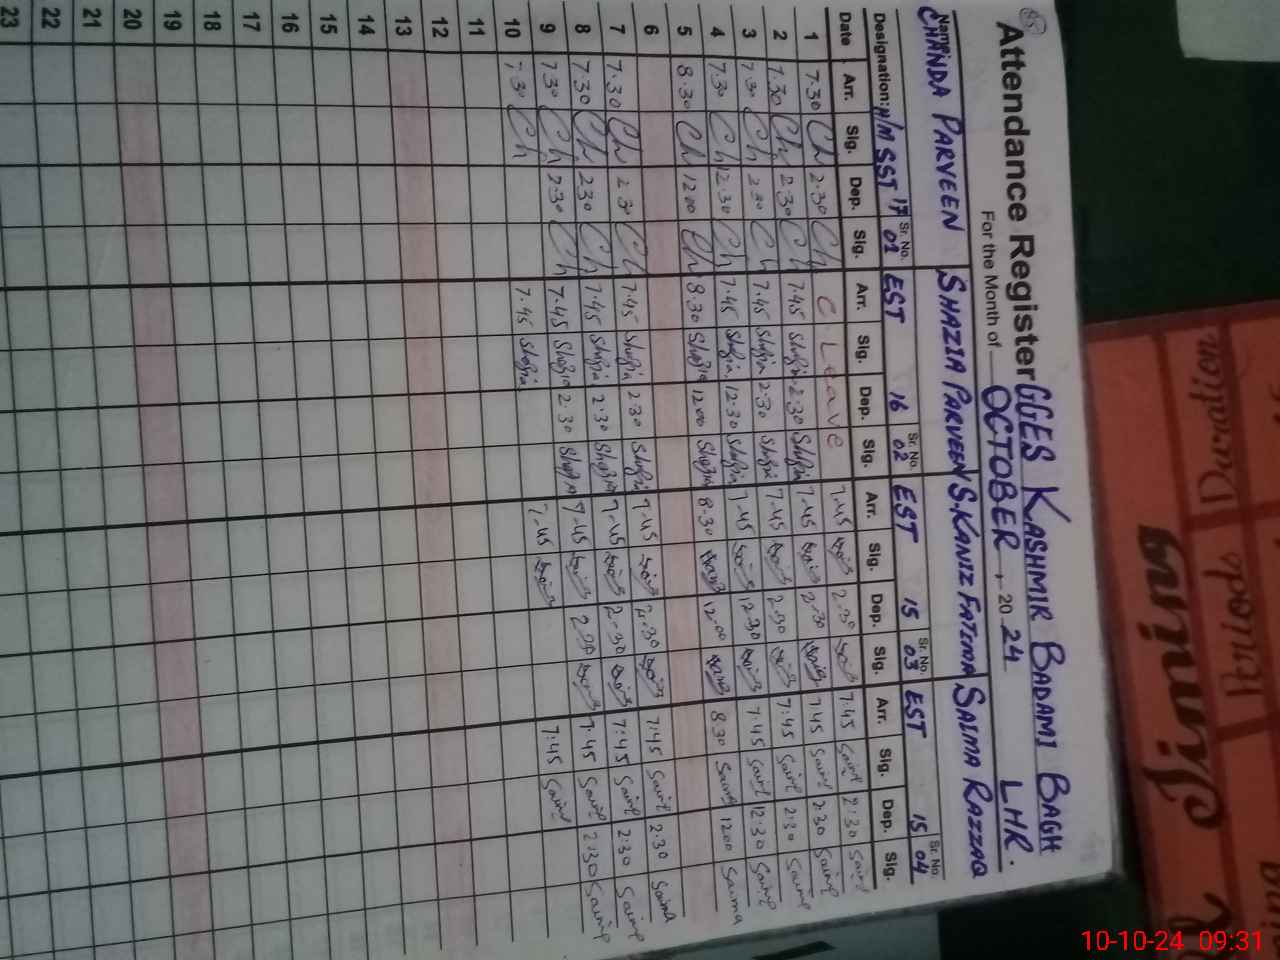 Attendance Register GGES KASHMIR BADAMI BAGH LHR.
For the Month of OCTOBER, 20 24
Name CHANDA PARVEEN SHAZIA PARVEEN S.KANIZ FATIMA SALMA RAZZAQ
Designation: H/M SST 17 Sr. No. 01 EST 16 Sr. No. 02 EST 15 Sr. No. 03 EST 15 Sr. No. 04
Date Arr. Sig. Dep. Sig. Arr. Sig. Dep. Sig. Arr. Sig. Dep. Sig. Arr. Sig. Dep. Sig.
1 7.30 Ch 2.30 Ch C. Leave 7.45 2.30 7.45 2:30
2 7.30 Ch 2.30 Ch 7.45 Shazia 2.30 Shazia 7.45 2.30 7.45 2:30
3 7.30 Ch 2.30 Ch 7.45 Shazia 2.30 Shazia 7.45 2.30 7:45 2:30
4 7.30 Ch 12.30 Ch 7.45 Shazia 12.30 Shazia 7.45 12.30 7.45 12:30
5 8.30 Ch 1200 Ch 8.30 Shazia 1200 Shazia 8.30 12.00 8.30 1200
6
7 7.30 Ch 2.30 Ch 7.45 Shazia 2.30 Shazia 7.45 2.30 7:45 2:30
8 7.30 Ch 2.30 Ch 7.45 Shazia 2.30 Shazia 7.45 2.30 7:45 2:30
9 7.30 Ch 2.30 Ch 7.45 Shazia 2.30 Shazia 7.45 2.30 7.45 2:30
10 7.30 Ch 7.45 Shazia 7.45 7:45
11
12
13
14
15
16
17
18
19
20
21
22
23
Timing
Periods Duration
10-10-24 09:31